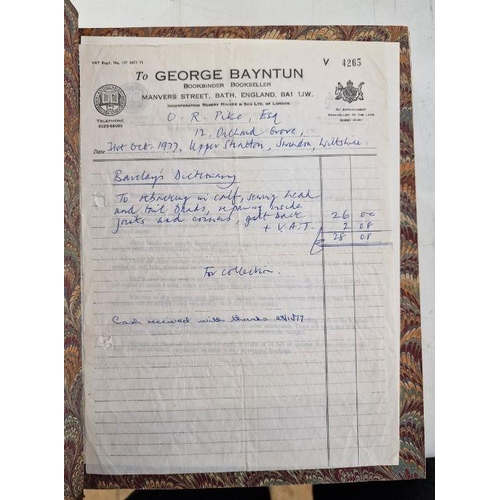 VAT Regd. No.
V 4265
To GEORGE BAYNTUN
BOOKBINDER BOOKSELLER
MANVERS STREET, BATH, ENGLAND, BA1 1JW.
INCORPORATING ROBERT RIVIERE & SON LTD. OF LONDON
TELEPHONE
BY APPOINTMENT
BOOKSELLER TO THE LATE
QUEEN MARY
O. R. Pike, Esq
12, Orchard Grove,
Date 31st Oct. 1977, Upper Stratton, Swindon, Wiltshire.
Barclay's Dictionary
To rebacking in calf, sewing head
and tail bands, repairing inside
joints and corners, gilt back 26 00
+ V.A.T. 2 08
28 08
For collection.
Cash received with thanks